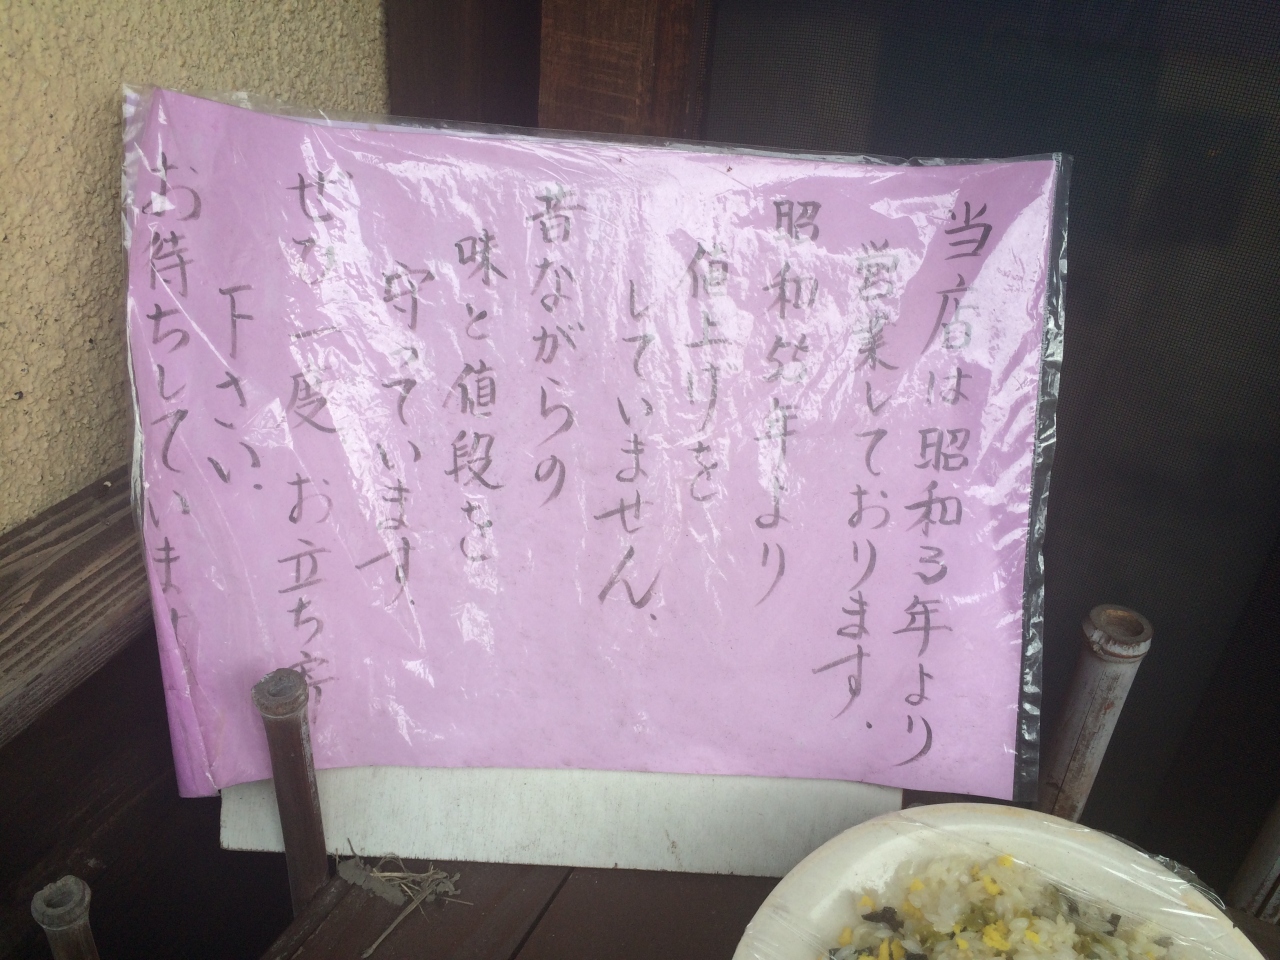 当店は昭和3年より
営業しております.
昭和55年より
値上げを
していません.
昔ながらの
味と値段を
守っています.
ぜひ一度 お立ち寄
下さい.
お待ちしています